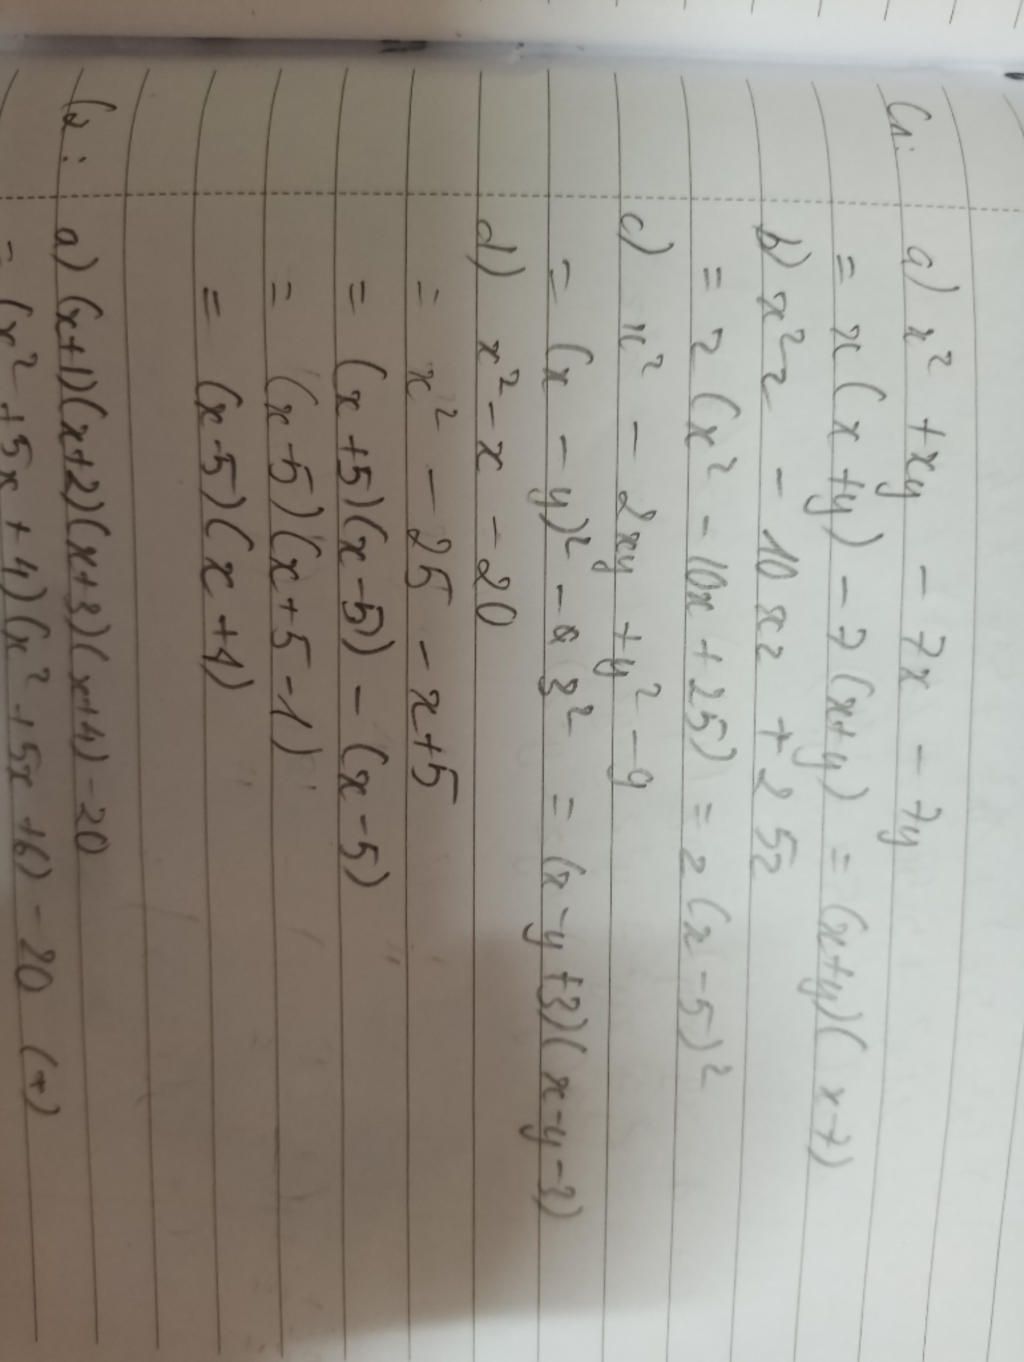 C1: a) x² + xy - 7x - 7y
= x(x+y) - 7(x+y) = (x+y)(x-7)
b) x²z - 10xz + 25z
= z(x² - 10x + 25) = z(x-5)²
c) x² - 2xy + y² - 9
= (x - y)² - 3² = (x-y+3)(x-y-3)
d) x² - x - 20
= x² - 25 - x+5
= (x+5)(x-5) - (x-5)
= (x-5)(x+5-1)
= (x-5)(x+4)
C2: a) (x+1)(x+2)(x+3)(x+4) - 20
= (x² + 5x + 4)(x² + 5x + 6) - 20 (*)